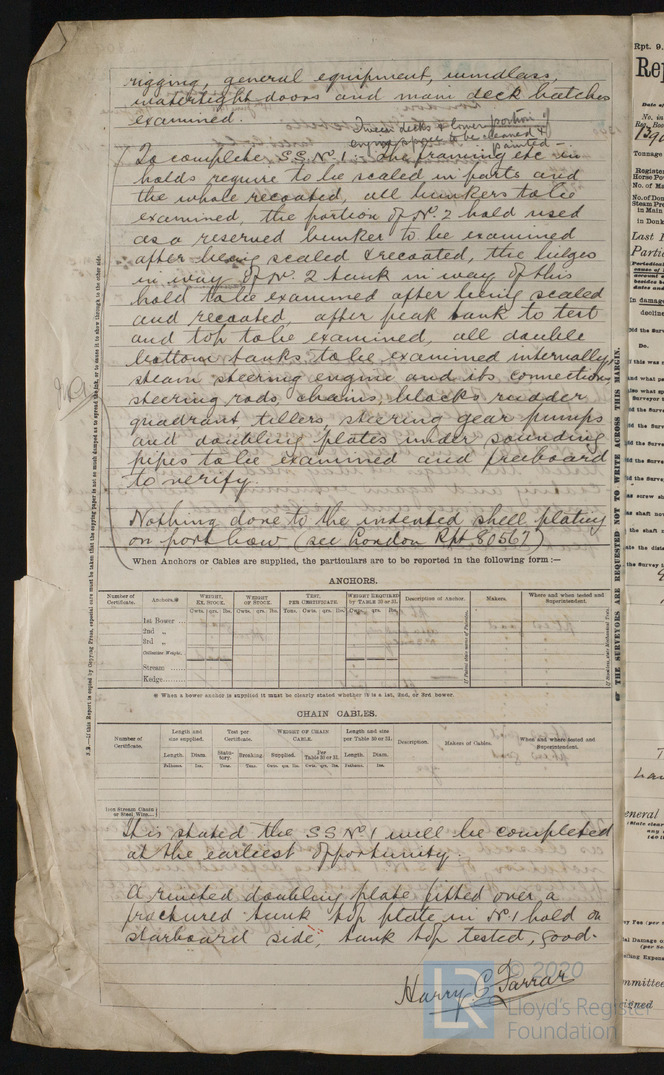 rigging, general equipment, windlass,
watertight doors and main deck hatches
examined.
Tween decks & lower portion of
engine space to be cleaned &
painted -
To complete S.S. No. 1 - The framing etc in
holds require to be scaled in parts and
the whole recoated, all bunkers to be
examined, the portion of No. 2 hold used
as a reserved bunker to be examined
after being scaled & recoated, the bilges
in way of No. 2 tank in way of this
hold to be examined after being scaled
and recoated, after peak tank to test
and top to be examined, all double
bottom tanks to be examined internally,
steam steering engine and its connections
steering rods, chains, blocks rudder
quadrant tillers, steering gear pumps
and doubling plates under sounding
pipes to be examined and freeboard
to verify.
Nothing done to the indented shell plating
on port bow (see London Rpt 80567)
When Anchors or Cables are supplied, the particulars are to be reported in the following form :—
ANCHORS.
Number of Certificate. Anchors.* WEIGHT, EX. STOCK. WEIGHT OF STOCK. TEST, PER CERTIFICATE. WEIGHT REQUIRED by TABLE 30 or 31. Description of Anchor. Makers. Where and when tested and Superintendent.
Cwts. qrs. lbs. Cwts. qrs. lbs. Tons. Cwts. qrs. lbs. Cwts. qrs. lbs.
1st Bower
2nd „
3rd „
Collective Weight.
Stream
Kedge
* When a bower anchor is supplied it must be clearly stated whether it is a 1st, 2nd, or 3rd bower.
CHAIN CABLES.
Number of Certificate. Length and size supplied. Test per Certificate. WEIGHT OF CHAIN CABLE. Length and size per Table 30 or 31. Description. Makers of Cables. When and where tested and Superintendent.
Length. Diam. Statutory. Breaking. Supplied. Per Table 30 or 31. Length. Diam.
Fathoms. Ins. Tons. Tons. Cwts. qrs. lbs. Cwts. qrs. lbs. Fathoms. Ins.
Iron Stream Chain or Steel Wire
It is stated the SS No 1 will be completed
at the earliest opportunity.
A riveted doubling plate fitted over a
fractured tank top plate in No 1 hold on
starboard side, tank top tested, good.
Harry C. Farrar
© 2020
LR
Lloyd's Register
Foundation
OF THE SURVEYORS ARE REQUESTED NOT TO WRITE ACROSS THIS MARGIN.
Rpt. 9.